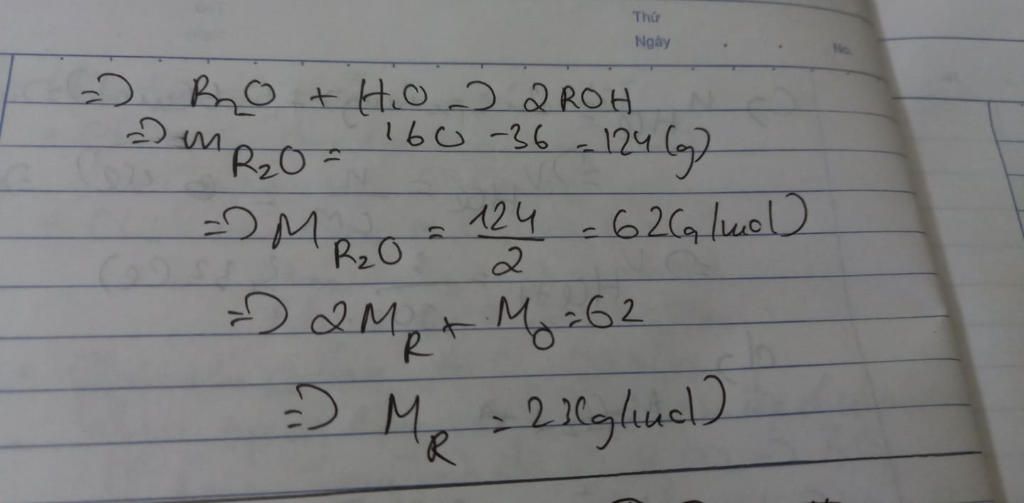 Thứ
Ngày . . No.
=> R₂O + H₂O -> 2ROH
=> m R₂O = 160 - 36 = 124 (g)
=> M R₂O = 124/2 = 62 (g/mol)
=> 2M R + M O = 62
=> M R = 23 (g/mol)